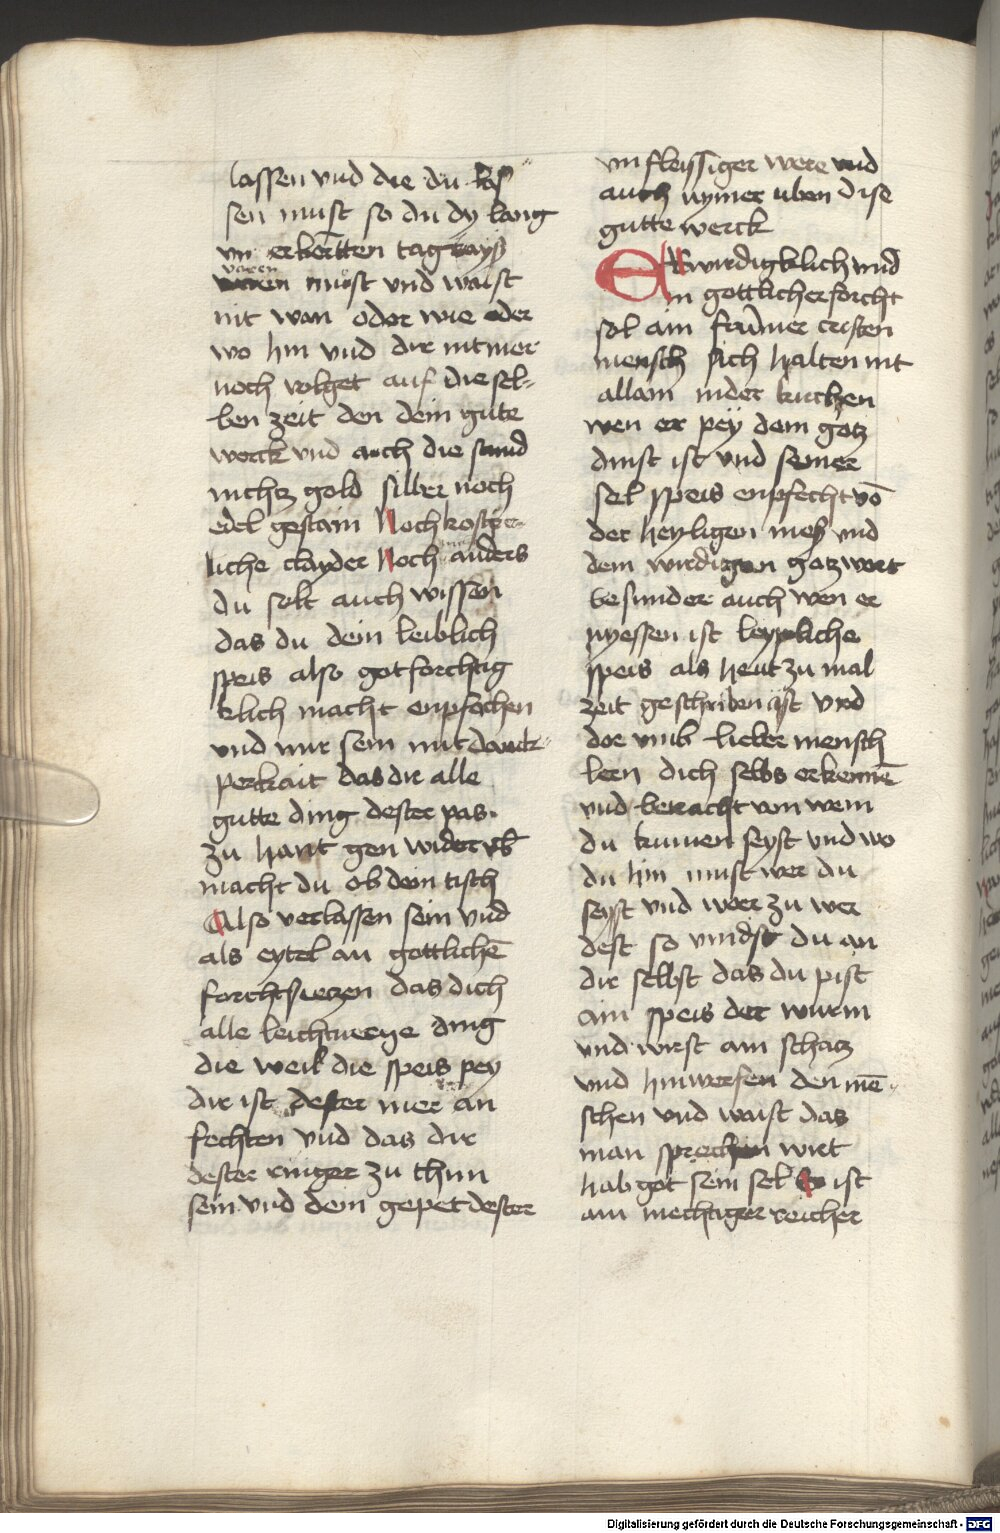 lassen vnd die du las
sen must so du dy lang
vn erkertten tagrayß
varen must vnd waist
nit wan oder wie oder
wo hin vnd dir nit mer
noch volget auf die sel-
ben zeit den dein gute
werck vnd auch die sund
nichtz gold silber noch
edel gestain Noch kostper-
liche clayder Noch anders
du solt auch wissen
das du dein leiblich
speis also gotforchtig
klich macht enpfachen
vnd mir sein mit danck-
perkait das dir alle
gutte ding dester pas.
zu hant gen wider
macht du ob dein tisch
Also verlassen sein vnd
als eytel an gottlichē
forcht sietzen das dich
alle leichtuerige ding
die weil die speis pey
dir ist dester mer an
fechten vnd das dir
dester ringer zu thun
sein vnd dem gepet dester
vnfleyssiger were vnd
auch nymer uben dise
gutte werck
Erwirdigklich vnd
in gottlicher forcht
sol ain frūmer cristen
mensch sich halten nit
allain in der kirchen
wen er pey dem gotz
dinst ist vnd seiner
sel speis enpfecht vō
der heyligen meß vnd
dem wirdigen gotzwort
besunder auch wen er
nyessen ist leyppliche
speis als heut zu mal
zeit geschriben ist vnd
dor vmb lieber mensch
lern dich selbs erkennē
vnd betracht von wem
du kumen seyst vnd wo
du hin must wer du
seyst vnd wer zu wer
dest so vindst du an
dir selbst das du pist
ain speis der wurm
vnd wirst ain schatz
vnd hinwerfen den mē-
schen vnd waist das
man sprechen wirt
hab got sein sel Er ist
ain mechtiger reicher
Digitalisierung gefördert durch die Deutsche Forschungsgemeinschaft - DFG